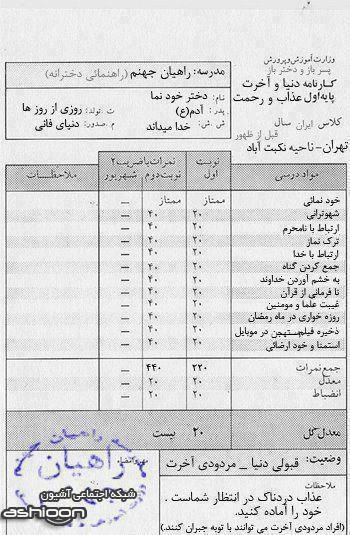 وزارت آموزش و پرورش
پسر باز و دختر باز
کارنامه دنیا و آخرت
پایه اول عذاب و رحمت
کلاس ایران سال
قبل از ظهور
تهران - ناحیه نکبت آباد
مدرسه: راهیان جهنم (راهنمائی دخترانه)
نام: دختر خود نما
پدر: آدم(ع) ت.تولد: روزی از روز ها
ش.ش: خدا میداند م.صدور: دنیای فانی
مواد درسی نوبت اول نمرات با ضریب ۲ نوبت دوم شهریور ملاحظات
خود نمائی ممتاز ممتاز —
شهوترانی ۲۰ ۴۰ —
ارتباط با نامحرم ۲۰ ۴۰ —
ترک نماز ۲۰ ۴۰ —
ارتباط با خدا ۲۰ ۴۰ —
جمع کردن گناه ۲۰ ۴۰ —
به خشم آوردن خداوند ۲۰ ۴۰ —
نا فرمانی از قرآن ۲۰ ۴۰ —
غیبت علما و مومنین ۲۰ ۴۰ —
روزه خواری در ماه رمضان ۲۰ ۴۰ —
ذخیره فیلم مستهجن در موبایل ۲۰ ۴۰ —
استمنا و خود ارضائی ۲۰ ۴۰ —
جمع نمرات ۲۲۰ ۴۴۰ —
معدل ۲۰ ۲۰ —
انضباط ۲۰ ۲۰ —
معدل کل ۲۰ بیست
وضعیت: قبولی دنیا _ مردودی آخرت
مهر و امضاء
ملاحظات
عذاب دردناک در انتظار شماست.
خود را آماده کنید.
(افراد مردودی آخرت می توانند با توبه جبران کنند.)
راهیان
شبکه اجتماعی آشیون
ashioon